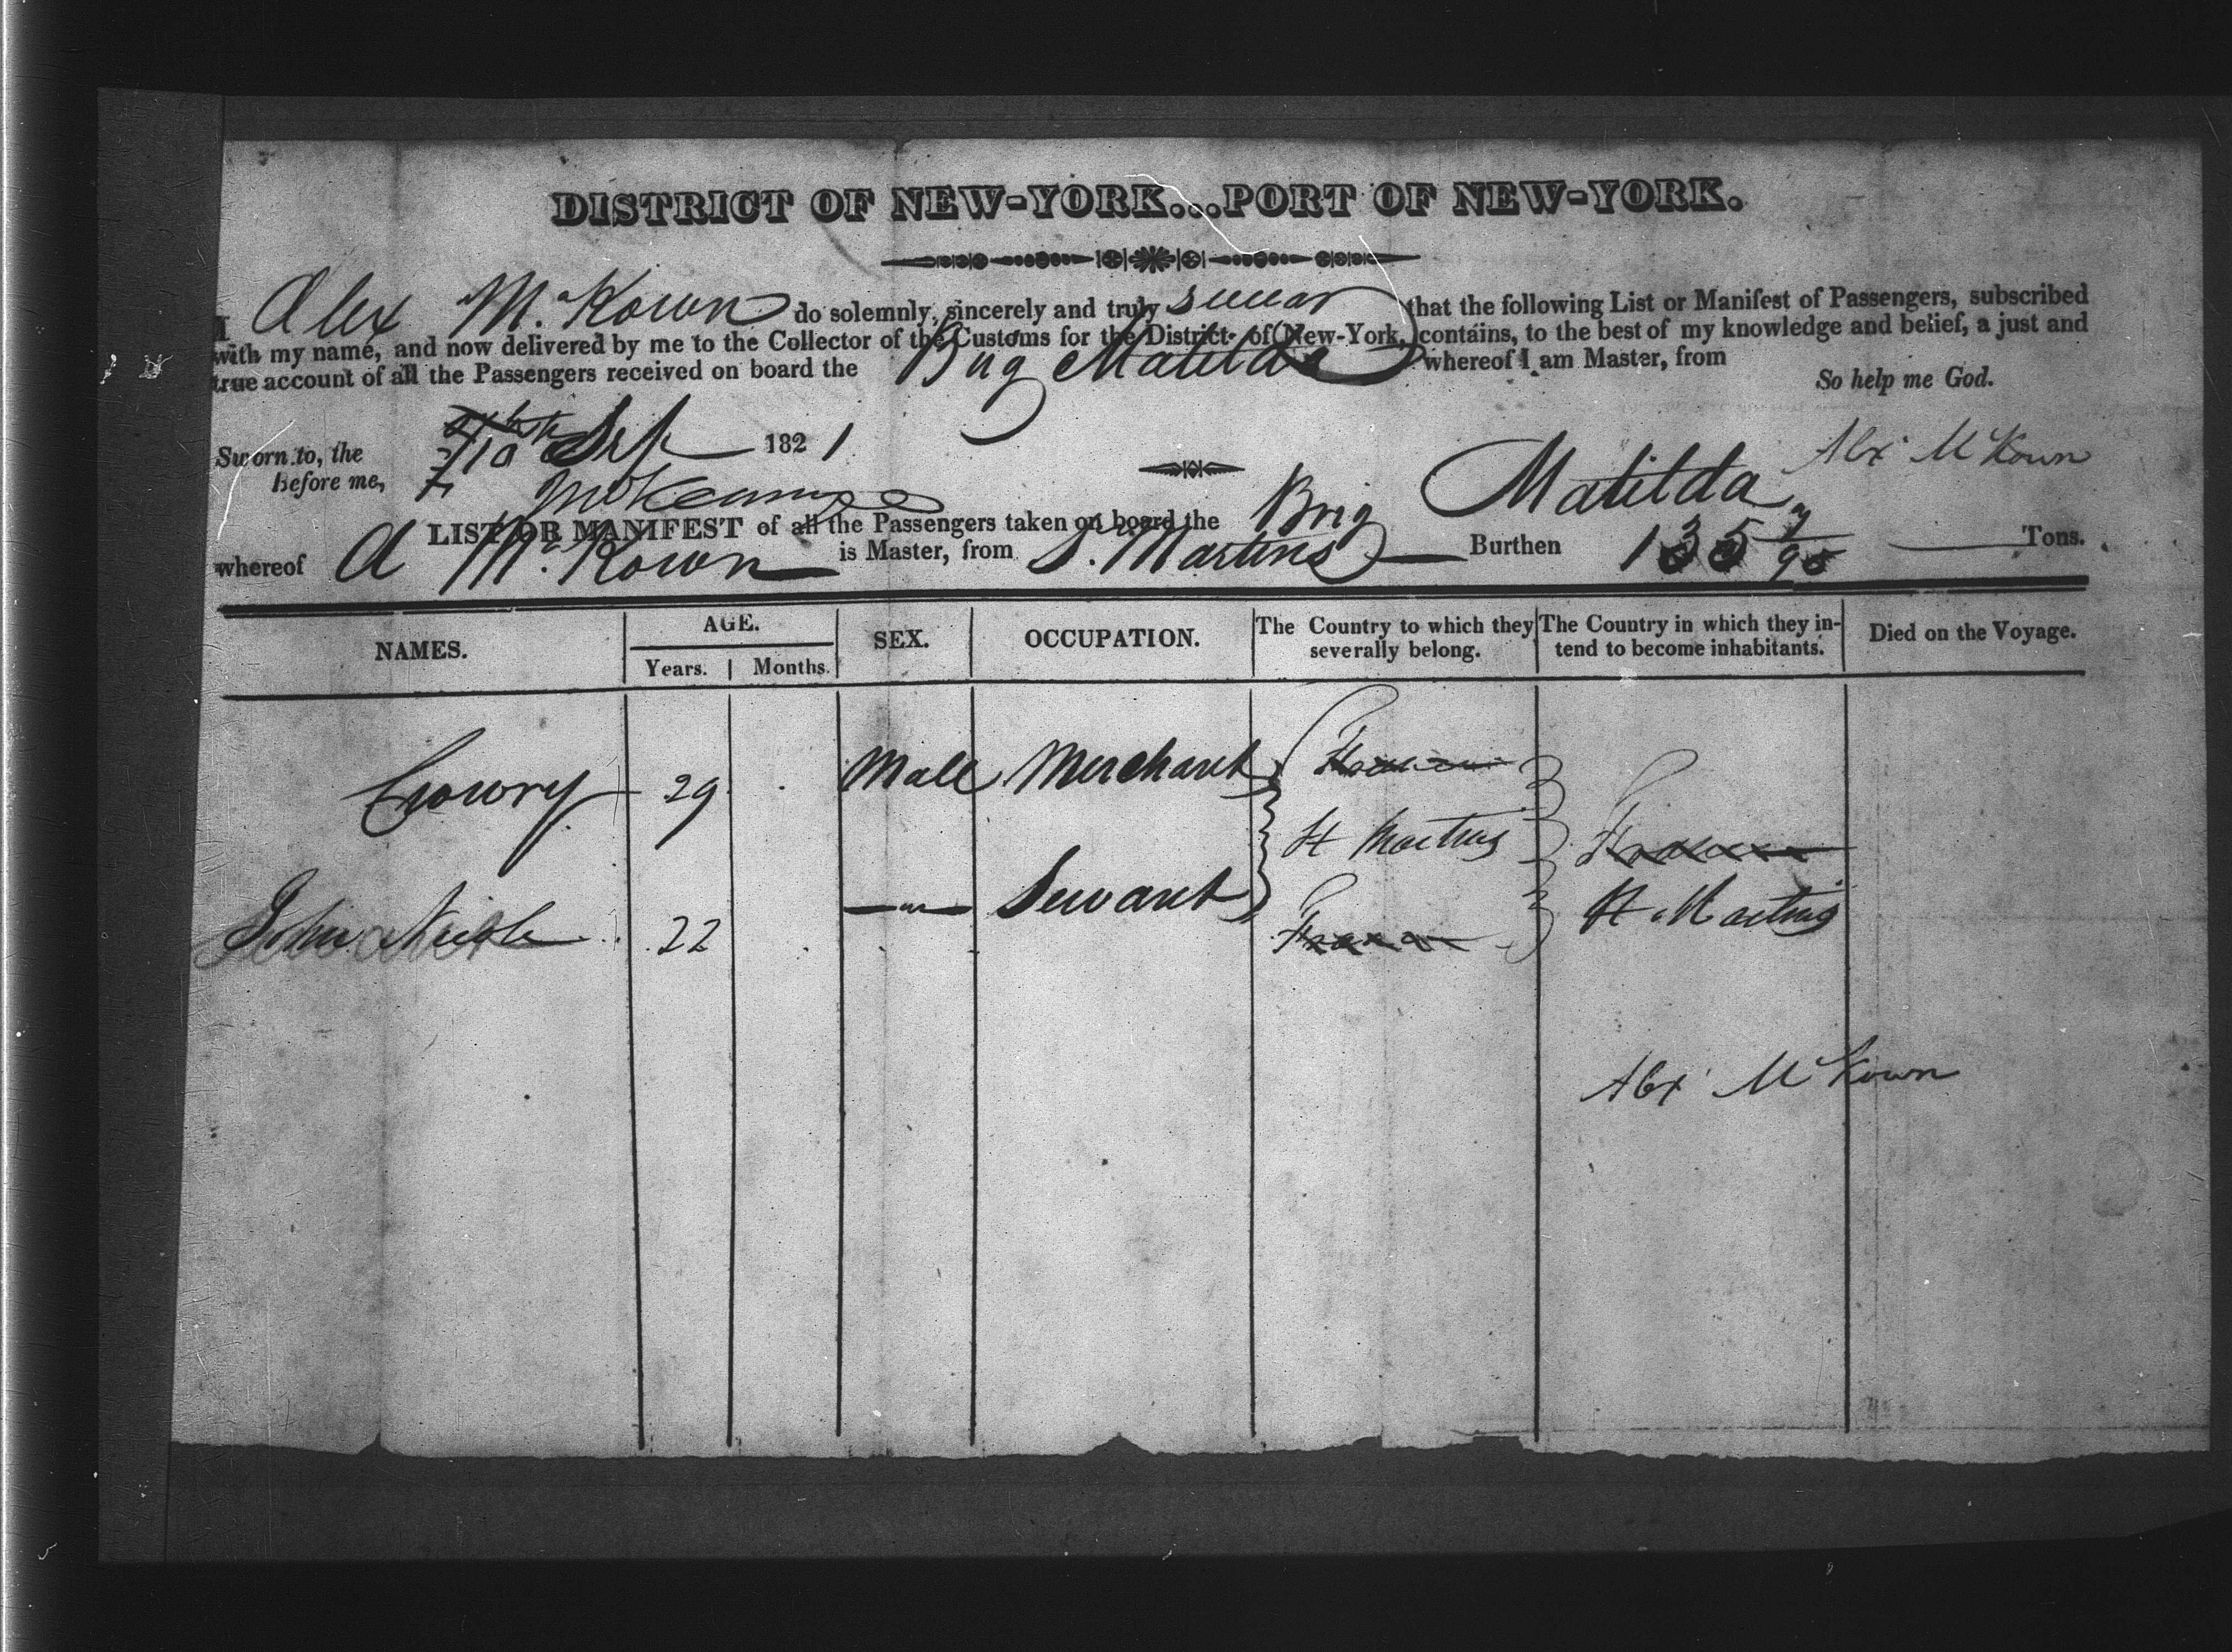 DISTRICT OF NEW-YORK...PORT OF NEW-YORK.
I Alex McKown do solemnly, sincerely and truly swear that the following List or Manifest of Passengers, subscribed
with my name, and now delivered by me to the Collector of the Customs for the District of New-York, contains, to the best of my knowledge and belief, a just and
true account of all the Passengers received on board the Brig Matilda whereof I am Master, from
So help me God.
Sworn to, the Sep 1821
Alex McKown
Before me,
LIST OR MANIFEST of all the Passengers taken on board the Brig Matilda
whereof A McKown is Master, from St. Martins Burthen 135 Tons.
NAMES. AGE. SEX. OCCUPATION. The Country to which they severally belong. The Country in which they intend to become inhabitants. Died on the Voyage.
Years. Months.
29 Male Merchant France
St Martins France
John 22 Servant France St Martins
Alex McKown